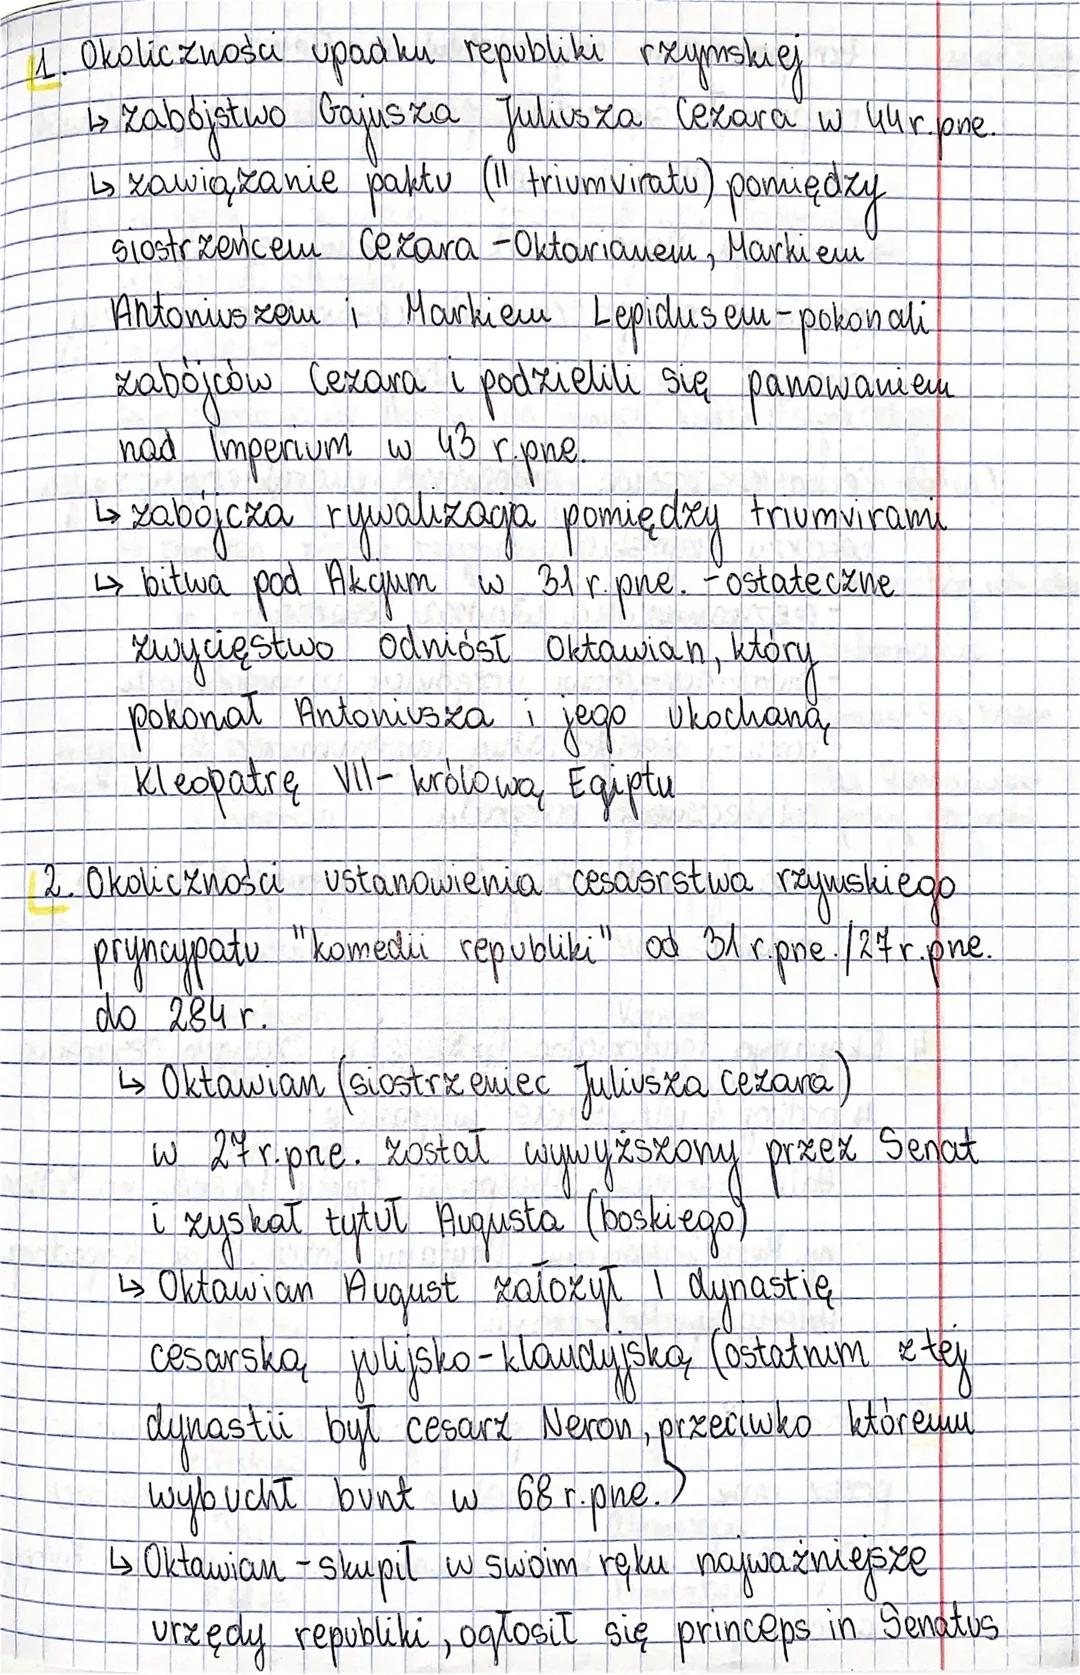 1. Okoliczności upadku republiki rzymskiej
↳ zabójstwo Gajusza Juliusza Cezara w 44 r. pne.
↳ zawiązanie paktu (II triumviratu) pomiędzy
siostrzeńcem Cezara - Oktavianem, Markiem
Antoniuszem i Markiem Lepidusem - pokonali
zabójców Cezara i podzielili się panowaniem
nad Imperium w 43 r. pne.
↳ zabójcza rywalizacja pomiędzy triumvirami
↳ bitwa pod Akcjum w 31 r. pne. - ostateczne
zwycięstwo odniósł Oktawian, który
pokonał Antoniusza i jego ukochaną
Kleopatrę VII - królową Egiptu
2. Okoliczności ustanowienia cesasrstwa rzymskiego
pryncypatu "komedii republiki" od 31 r. pne. / 27 r. pne.
do 284 r.
↳ Oktawian (siostrzeniec Juliusza Cezara)
w 27 r. pne. został wywyższony przez Senat
i zyskał tytuł Augusta (boskiego)
↳ Oktawian August założył I dynastię
cesarską julijsko-klaudyjską (ostatnim z tej
dynastii był cesarz Neron, przeciwko któremu
wybuchł bunt w 68 r. pne.)
↳ Oktawian - skupił w swoim ręku najważniejsze
urzędy republiki, ogłosił się princeps in Senatus